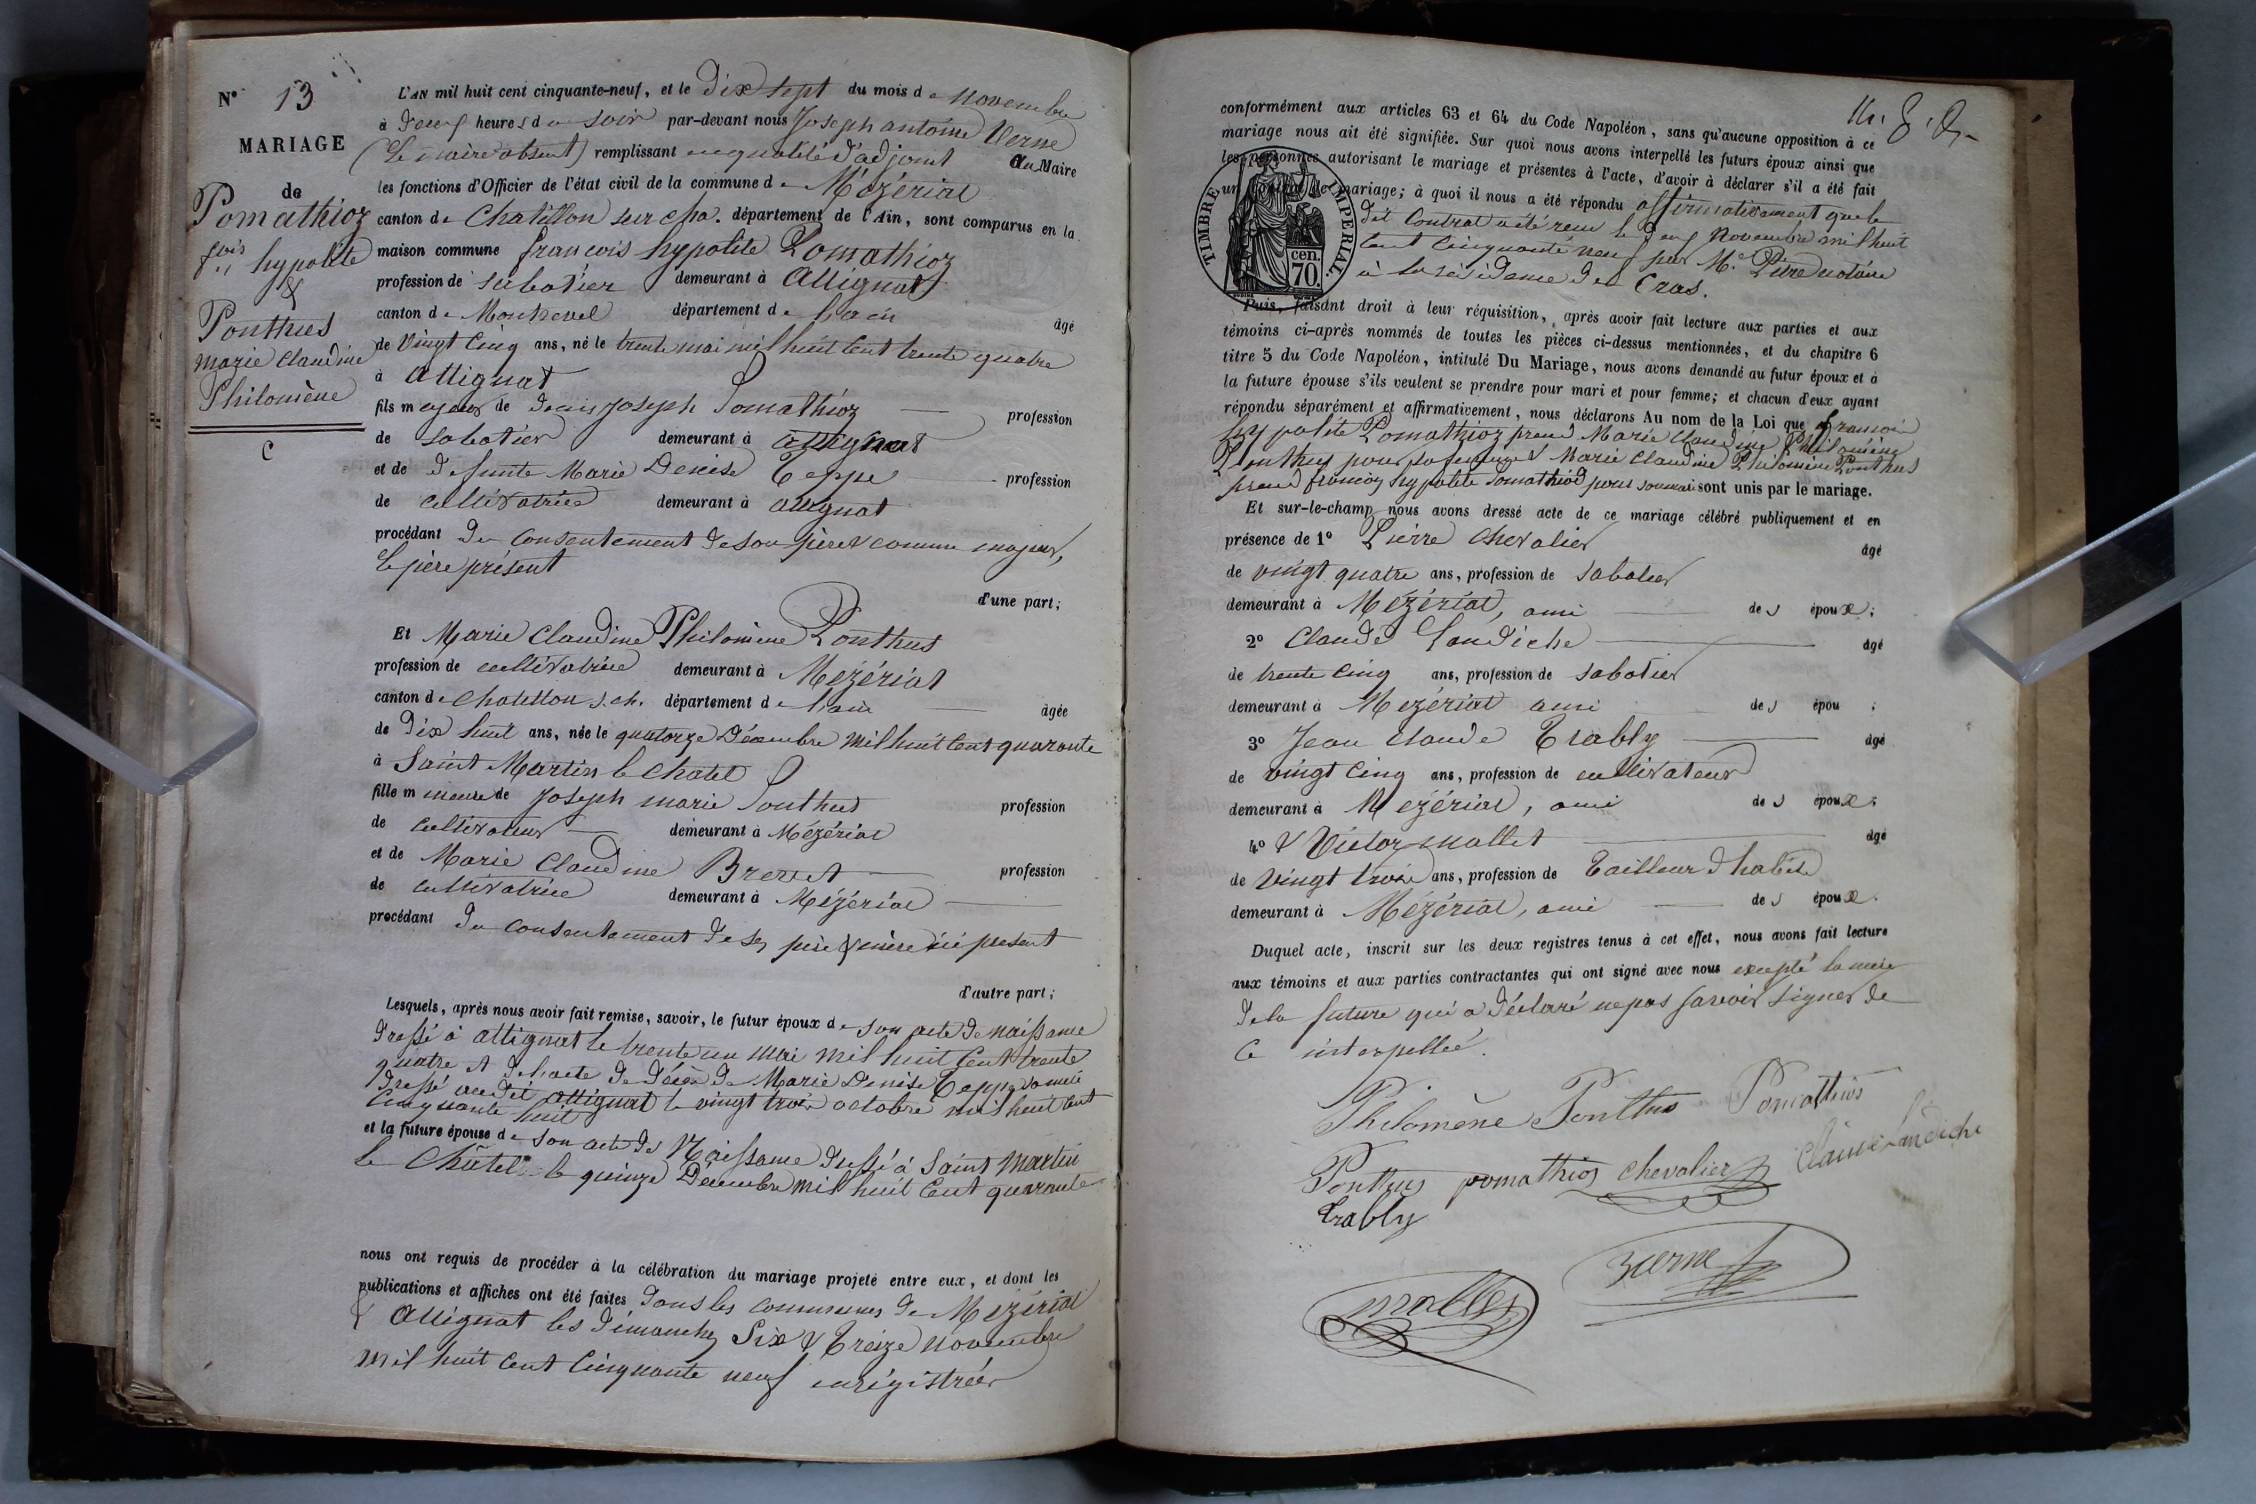 N° 13
MARIAGE
de
Pomathioz
fois hypolite
&
Ponthus
Marie Claudine
Philomène
C
L'AN mil huit cent cinquante-neuf, et le Dix sept du mois de Novembre
à Neuf heures du soir par-devant nous Joseph antoine Verne
(Le Maire absent) remplissant en qualité d'adjoint au Maire
les fonctions d'Officier de l'état civil de la commune de Mézériat
canton de Chatillon sur cha. département de l'Ain, sont comparus en la
maison commune françois hypolite Pomathioz
profession de sabotier demeurant à Attignat
canton de Montrevel département de l'ain âgé
de Vingt Cinq ans, né le trente mai mil huit Cent trente quatre
à Attignat
fils majeur de Denis Joseph Pomathioz profession
de sabotier demeurant à attignat
et de Defunte Marie Denise Teppe profession
de cultivatrice demeurant à attignat
procédant du consentement de son père & comme majeur,
Le père présent
d'une part;
Et Marie Claudine Philomène Ponthus
profession de cultivatrice demeurant à Mézériat
canton de Chatillon s. ch. département de l'ain âgée
de Dix huit ans, née le quatorze Décembre Mil huit Cent quarante
à Saint Martin le Chatel
fille mineure de Joseph marie Ponthus profession
de cultivateur demeurant à Mézériat
et de Marie Claudine Brevet profession
de cultivatrice demeurant à Mézériat
procédant du consentement de ses père & mère ici présent
d'autre part;
Lesquels, après nous avoir fait remise, savoir, le futur époux de son acte de naissance
dressé à attignat le trente un Mai Mil huit Cent trente
quatre et de l'acte de décès de Marie Denise Teppe sa mère
dressé au dit attignat le vingt trois octobre mil huit Cent
Cinquante huit
et la future épouse de son acte de Naissance dressé à Saint Martin
le Châtel le quinze Décembre Mil huit Cent quarante
nous ont requis de procéder à la célébration du mariage projeté entre eux, et dont les
publications et affiches ont été faites dans les communes de Mézériat
& Attignat les dimanches Six & Treize Novembre
Mil huit Cent Cinquante neuf
conformément aux articles 63 et 64 du Code Napoléon, sans qu'aucune opposition à ce
mariage nous ait été signifiée. Sur quoi nous avons interpellé les futurs époux ainsi que
les personnes autorisant le mariage et présentes à l'acte, d'avoir à déclarer s'il a été fait
un de mariage; à quoi il nous a été répondu affirmativement que le
dit Contrat a été reçu le neuf Novembre mil huit
Cent Cinquante neuf par Me notaire
à la résidence de Cras.
TIMBRE IMPERIAL.
cen.
70.
Puis, faisant droit à leur réquisition, après avoir fait lecture aux parties et aux
témoins ci-après nommés de toutes les pièces ci-dessus mentionnées, et du chapitre 6
titre 5 du Code Napoléon, intitulé Du Mariage, nous avons demandé au futur époux et à
la future épouse s'ils veulent se prendre pour mari et pour femme; et chacun d'eux ayant
répondu séparément et affirmativement, nous déclarons Au nom de la Loi que françois
hypolite Pomathioz prend Marie Claudine Philomène
Ponthus pour sa femme & Marie Claudine Philomène Ponthus
prend françois hypolite Pomathioz pour son mari sont unis par le mariage.
Et sur-le-champ nous avons dressé acte de ce mariage célébré publiquement et en
présence de 1° Pierre Chevalier âgé
de vingt quatre ans, profession de sabotier
demeurant à Mézériat, ami des époux;
2° Claude Landiche âgé
de trente cinq ans, profession de sabotier
demeurant à Mézériat ami des épou ;
3° Jean Claude Trably âgé
de vingt Cinq ans, profession de cultivateur
demeurant à Mézériat, ami des époux;
4° & Victor Mallet âgé
de Vingt trois ans, profession de Tailleur d'habits
demeurant à Mézériat, ami des époux.
Duquel acte, inscrit sur les deux registres tenus à cet effet, nous avons fait lecture
aux témoins et aux parties contractantes qui ont signé avec nous excepté la mère
de la future qui a déclaré ne pas savoir signer de
ce interpellée.
Philomène Ponthus Pomathios
Ponthus pomathioz chevalier Claude Landiche
trably
verne
mallet